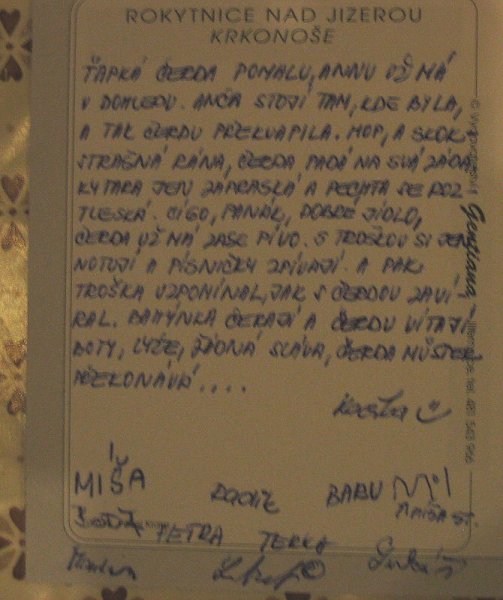 ROKYTNICE NAD JIZEROU
KRKONOŠE
ŤAPKÁ ČERDA POMALU, ANNU UŽ MÁ
V DOHLEDU. ANČA STOJÍ TAM, KDE BYLA,
A TAK ČERDU PŘEKVAPILA. HOP, A SKOK
STRAŠNÁ RÁNA, ČERDA PADÁ NA SVÁ ZÁDA
KYTARA JEN ZAPRASKÁ A PECHTA SE ROZ
TLESKÁ. CIGO, PANÁK, DOBRÉ JÍDLO,
ČERDA UŽ MÁ ZASE PIVO. S TROŠKOU SI JEN
NOTUJÍ A PÍSNIČKY ZPÍVAJÍ. A PAK
TROŠKA VZPOMÍNAL, JAK S ČERDOU ZAVÍ-
RAL. BAHÝNKA ČEKAJÍ A ČERDU VÍTAJÍ
BOTY, LYŽE, ŽÁDNÁ SLÁVA, ČERDA MŮSTEK
PŘEKONÁVÁ....
MIŠA
BABU
MÍŠA ST.
PETRA TERKA
Gentiana,